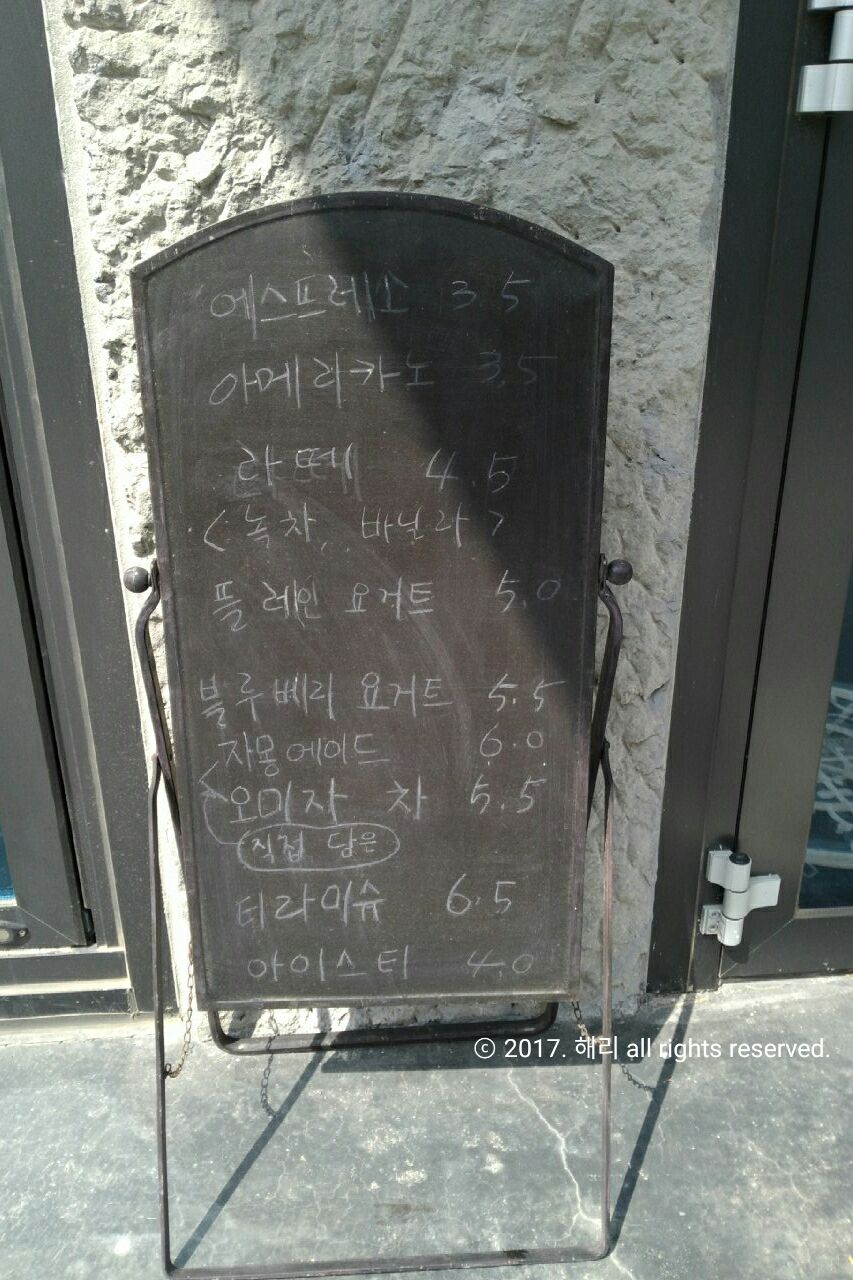 에스프레소 3.5
아메리카노 3.5
라떼 4.5
<녹차, 바닐라>
플레인 요거트 5.0
블루베리 요거트 5.5
자몽에이드 6.0
오미자 차 5.5
직접 담은
티라미슈 6.5
아이스티 4.0
© 2017. 해리 all rights reserved.